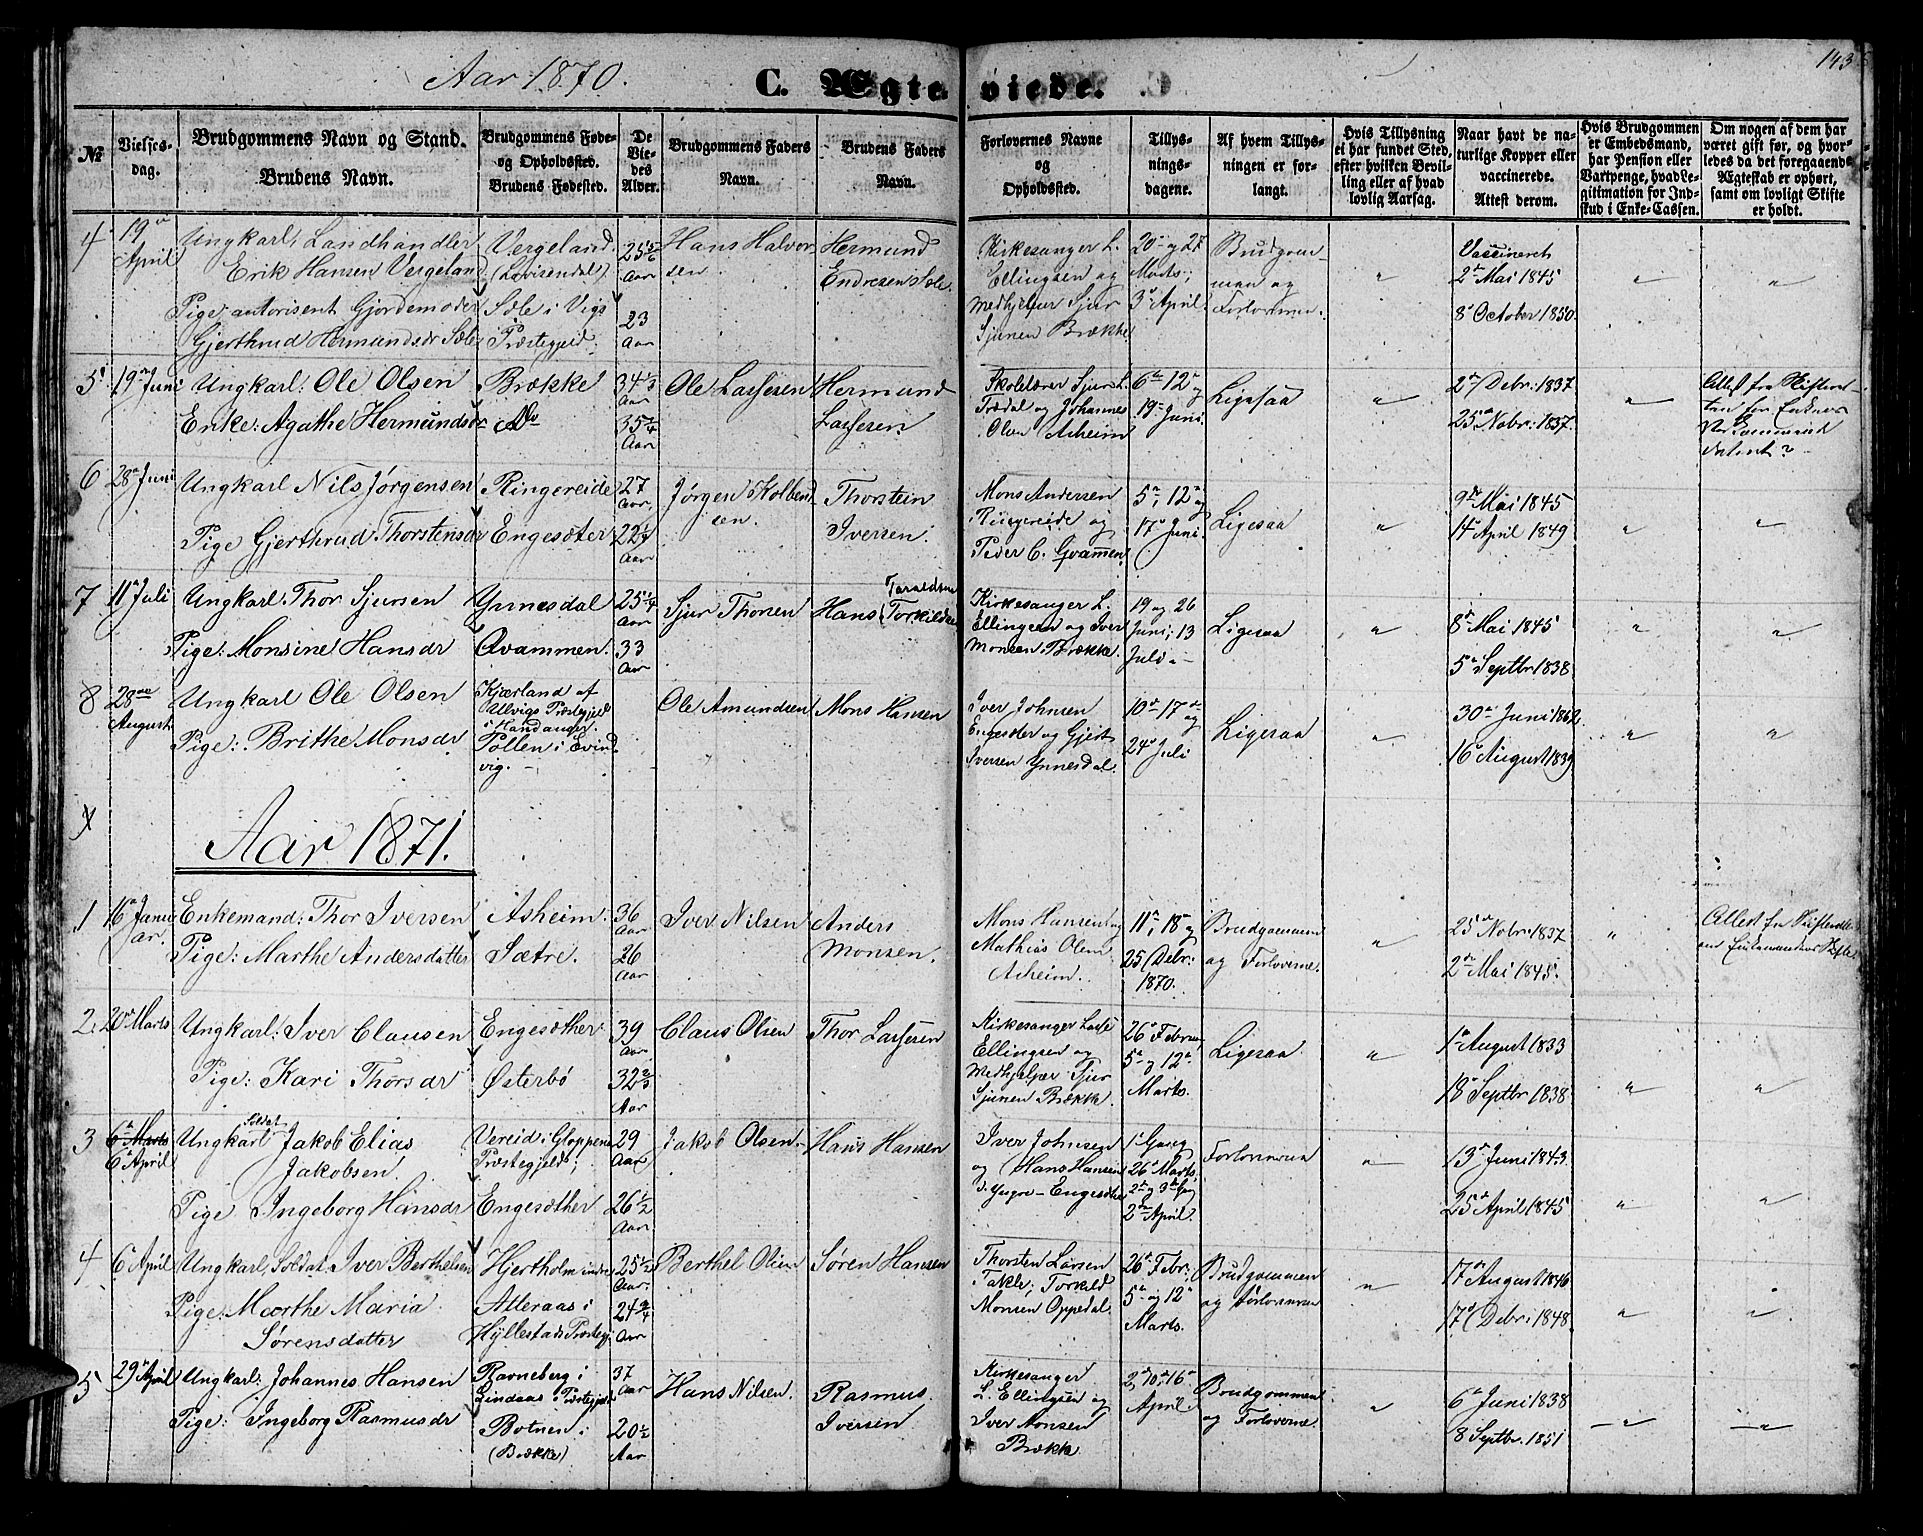 Aar 1870. C. Ægteviede. 143
№
Vielses-
dag.
Brudgommens Navn og Stand.
Brudens Navn.
Brudgommens Føde-
og Opholdssted.
Brudens Fødested.
De
Vie-
des
Alder.
Brudgommens Faders
Navn.
Brudens Faders
Navn.
Forlovernes Navne
og
Opholdssted.
Tillys-
nings-
dagene.
Af hvem Tillys-
ningen er for-
langt.
Hvis Tillysning
ei har fundet Sted,
efter hvilken Bevil-
ling eller af hvad
lovlig Aarsag.
Naar havt de na-
turlige Kopper eller
vaccinerede.
Attest derom.
Hvis Brudgommen
er Embedsmand,
har Pension eller
Vartpenge, hvad Le-
gitimation for Ind-
skud i Enke-Cassen.
Om nogen af dem har
været gift før, og hvor-
ledes da det foregaaende
Ægteskab er ophørt,
samt om lovligt Skifte
er holdt.
4
19de
April
Ungkarl, Landhandler
Erik Hansen Vergeland
Pige, autoriseret Gjordemoder
Gjerthrud Hermundsdr Sæle
Vergeland.
(Lovisendal)
Sæle i Vigs
Præstegjeld.
25 5/6
Aar
23
Aar
Hans Halvor
sen
Hermund
Endresen Sæle.
Kirkesanger L.
Ellingsen og
Medhjelper Sjur
Sjursen Brække
20de og 27
Marts;
3de April.
Brudgom-
man og
Forloverne.
"
Vaccineret
2den Mai 1845
8de October 1850.
"
"
5
19de Juni
Ungkarl: Ole Olsen
Enke: Agathe Hermundsdr
Brække
Do
34 1/3
Aar
35 1/4
Aar
Ole Lassesen
Hermund
Lassesen.
Skolelærer Sjur L.
Trædal og Johannes
Olsen Asheim
6te 12te og
19de Juni.
Ligesaa
"
2den Debr: 1837
25de Nobr: 1837.
"
Attest fra Skifteret-
ten
6
28de Juni
Ungkarl Nils Jørgensen
Pige Gjerthrud Thorstensdr
Ringereide
Engesæter
27
Aar,
22 1/4
Aar
Jørgen Kolbend
sen.
Thorstein
Iversen.
Mons Andersen
Ringereide og
Peder C. Qvammen
5te; 12te og
17de Juni.
Ligesaa
"
9de Mai 1845
14de April 1849
"
"
7
11te Juli
Ungkarl. Thor Sjursen
Pige: Monsine Hansdr
Ynnesdal
Qvammen.
25 1/4
Aar
33
Aar
Sjur Thorsen
Taraldsen
Hans (Torkildsen
Kirkesanger L.
Ellingsen og Iver
Monsen Brække.
19 og 26
Juni; 13
Juli.
Ligesaa
"
8de Mai 1845
5te Septbr 1838
"
"
8
28de
August.
Ungkarl Ole Olsen
Pige: Brithe Monsdr
Kjærland af
Ullvigs Præstegjeld
i Hardanger.
Pollen i Evind
vig.
Ole Amundsen
Mons Hansen
Iver Johnsen
Engesæter og Gjert
Iversen Ynnesdal.
10de 17de og
24de Juli
Ligesaa
"
30te Juni 1862.
16de August 1839
"
"
Aar 1871.
1
16de Janu-
ar.
Enkemand: Thor Iversen
Pige: Marthe Andersdatter
Asheim.
Sætre.
36
Aar
26
Aar
Iver Nilsen
Anders
Monsen.
Mons Hansen og
Mathias Olsen
Asheim.
11te; 18de og
25de Debr:
1870.
Brudgommen
og Forloverne.
"
25de Nobr: 1837.
2den Mai 1845.
"
Attest fra Skifteretten
2.
20de Marts
Ungkarl: Iver Clausen
Pige: Kari Thorsdr
Engesæther
Østerbø
39
Aar
32 2/3
Aar
Claus Olsen
Thor Lassesen
Kirkesanger Lasse
Ellingsen og
Medhjelper Sjur
Sjursen Brække.
26de Februar
5te og 12te
Marts.
Ligesaa
"
1ste August 1833
18de Septbr 1838
"
"
3
6te Marts
6te April
Soldat
Ungkarl Jakob Elias
Jakobsen
Pige Ingeborg Hansdr
Vereid i Gloppens
Præstegjeld;
Engesæther
29
Aar
26 1/2
Aar
Jakob Olsen
Hans Hansen
Iver Johnsen
og Hans Hansen
d. Yngre Engesæther
1ste Gang
26de Marts,
2den og 3die Gg
2den April.
Forloverne
"
13de Juni 1843.
25de April 1845
"
"
4
6te April
Ungkarl, Soldat Iver Berthelsen
Pige: Marthe Maria
Sørensdatter
Hjertholm indre
Atleraas i
Hyllestads Præstegj:
25 1/2
Aar.
24 3/4
Aar
Berthel Olsen
Søren Hansen
Thorsten Larsen
Takle; Torkild
Monsen Oppedal.
26de Febr:
5te og 12te
Marts.
Brudgommen
og Forloverne
"
17de August 1846
17de Debr: 1848.
"
"
5
29de April
Ungkarl: Johannes Hansen
Pige: Ingeborg Rasmusdr
Ravneberg i
Lindaas Præstegjeld
Botnen i
(Brække)
37
Aar
20 1/2
Aar
Hans Nilsen.
Rasmus
Iversen.
Kirkesanger
L. Ellingsen og
Iver Monsen
Brække
2, 10, 16de
April.
Brudgommen
og Forloverne
"
6te Juni 1838
8 Septbr. 1851
"
"